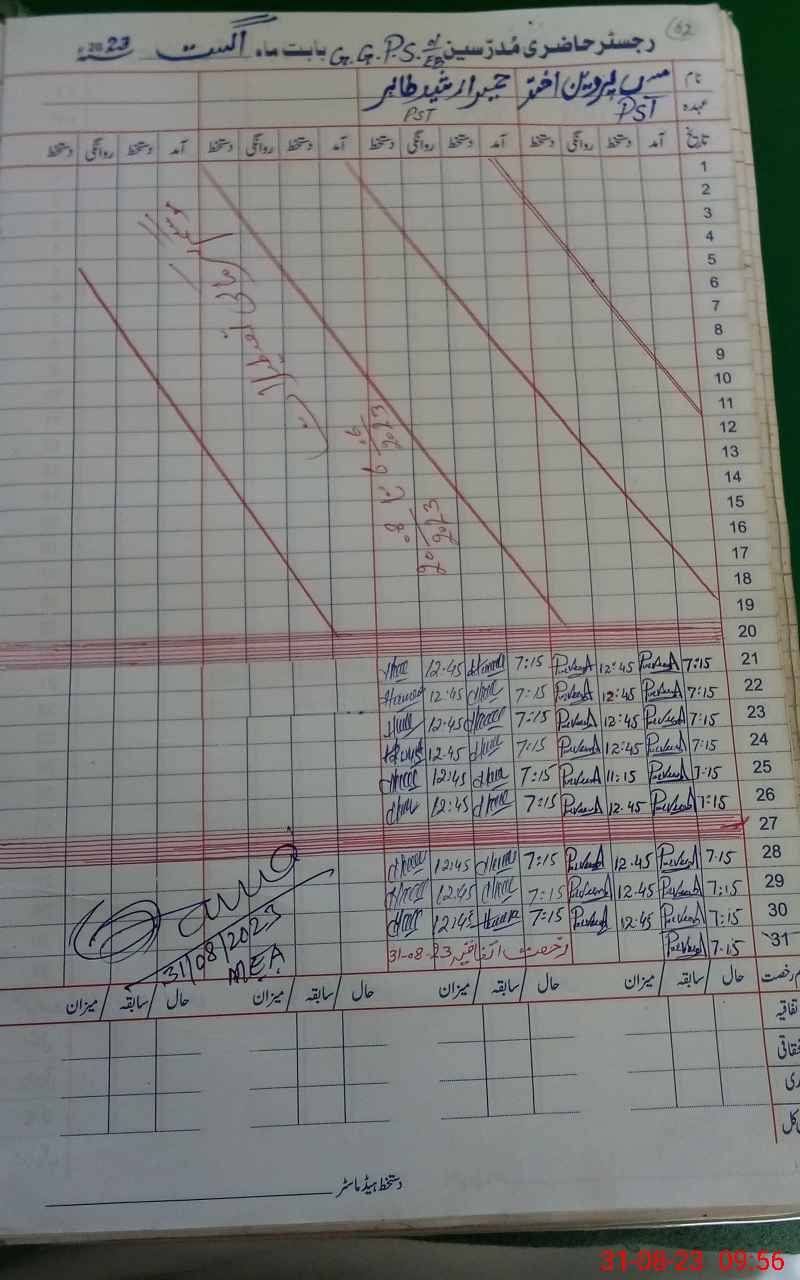 62
رجسٹر حاضری مُدرّسین G.G.P.S. بابت ماہ اگست 2023ء
نام مس پروین اختر حمیرا رشید طاہر
عہدہ PST PST
تاریخ آمد دستخط روانگی دستخط آمد دستخط روانگی دستخط آمد دستخط روانگی دستخط آمد دستخط روانگی دستخط
1
2
3
4
5
6
7
8
9
10
11
12
13
14
15
16
17
18
19
20
21 7:15 Parveen 12:45 Parveen 7:15 12:45
22 7:15 Parveen 12:45 Parveen 7:15 12:45
23 7:15 Parveen 12:45 Parveen 7:15 12:45
24 7:15 Parveen 12:45 Parveen 7:15 12:45
25 7:15 Parveen 11:15 Parveen 7:15 12:45
26 7:15 Parveen 12:45 Parveen 7:15 12:45
27
28 7:15 Parveen 12:45 Parveen 7:15 12:45
29 7:15 Parveen 12:45 Parveen 7:15 12:45
30 7:15 Parveen 12:45 Parveen 7:15 12:45
31 7:15 Parveen رخصت اتفاقیہ 31-08-23
موسم گرما کی تعطیلات
06 2023 تا 20 08 2023
31/08/2023
MEA
حال سابقہ میزان حال سابقہ میزان حال سابقہ میزان حال سابقہ میزان
دستخط ہیڈ ماسٹر
31-08-23 09:56